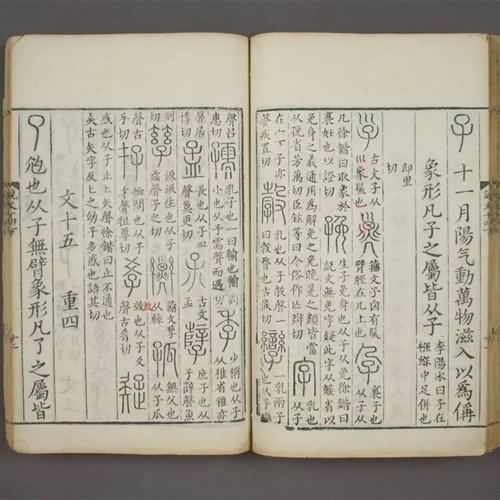 子 十一月陽气動萬物滋入以為偁
象形凡子之屬皆从子 李陽冰曰子在
襁緥中足併也
即里
切
古文子从
巛象髮也 籒文子囟有髮
臂脛在几上也 孕 裹子也
从子从
几徐鍇曰取象於
裹妊也以證切 㝃 生子免身也从子从免徐鍇曰
說文無免字疑此字从
省以
免身之義通用為解免之免晚冕之類皆當
从㝃省芳萬切臣鉉等曰今俗作亡辯切 字 乳也
从子
在宀下子亦
聲疾置切 㝅 乳也从子㱿聲一
曰㝅瞀也古候切 孿 一乳兩子
也从子䜌
聲生
患切 孺 乳子也一曰輸也輸尚
小也从子需聲而遇切 季 少偁也从子
从稚省稚亦
聲居
悸切 孟 長也从子皿
聲莫更切 古文
孟 孼 庶子也从
子辥聲魚
列
切 孳 汲汲生也从子
兹聲子之切 籒文孳
从絲 孤 無父也
从子瓜
聲古
乎切 存 恤問也从子才
聲徂尊切 𡥈 放也从子爻
聲古肴切 疑
惑也从子止匕矢聲徐鍇曰止不通也
矣古矢字反匕之幼子多惑也語其切
文十五 重四
了 尥也从子無臂象形凡了之屬皆